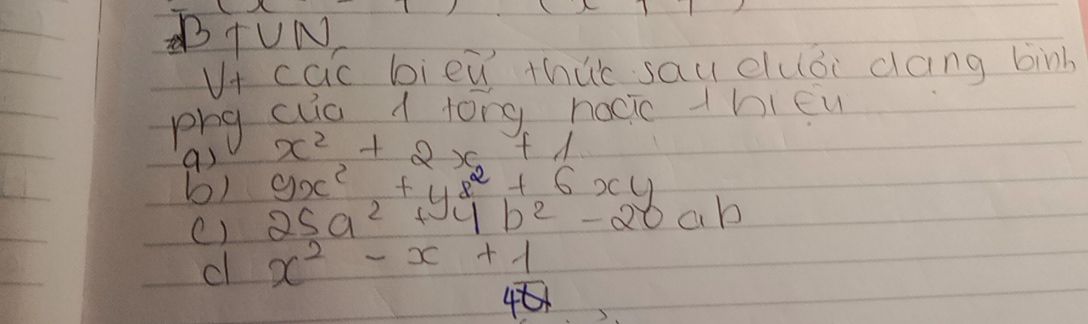 BTVN
Vt các biểu thức sau dưới dạng bình
phg của 1 tổng hoặc 1 hiệu
a) x² + 2x + 1
b) 9x² + y² + 6xy
c) 25a² + 4b² - 20ab
d x² - x + 1
4